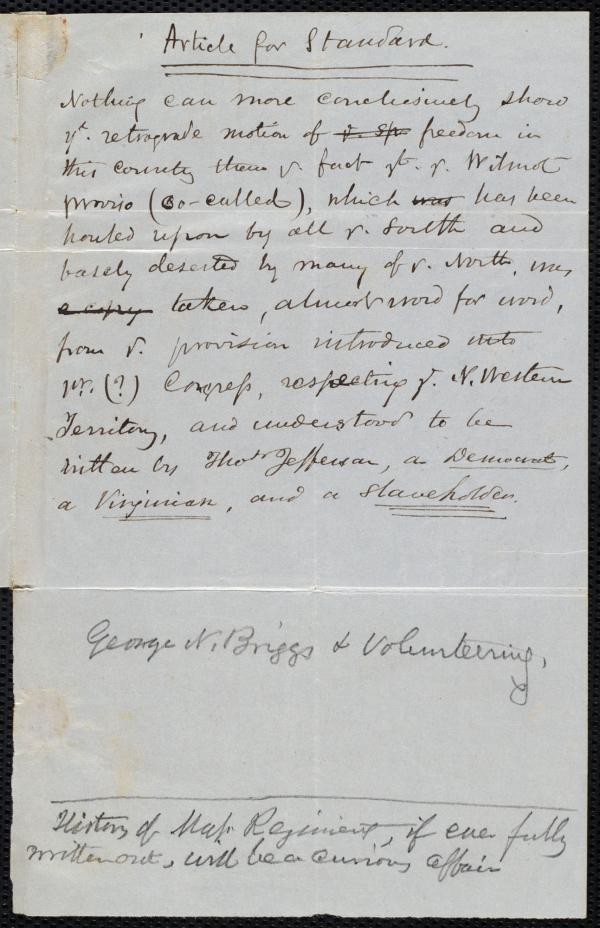 Article for Standard.
Nothing can more conclusively show
yt. retrograde motion of y. sp freedom in
this country than y. fact yt. y. Wilmot
proviso (so-called), which was has been
howled upon by all y. South and
basely deserted by many of y. North, was
a copy taken, almost word for word,
from y. provision introduced into
yr. (?) Congress, respecting y. N. Western
Territory, and understood to be
written by Thos. Jefferson, a Democrat,
a Virginian, and a Slaveholder.
George N. Briggs & Volunteering,
History of Mass. Regiment, if ever fully
written out, will be a curious affair